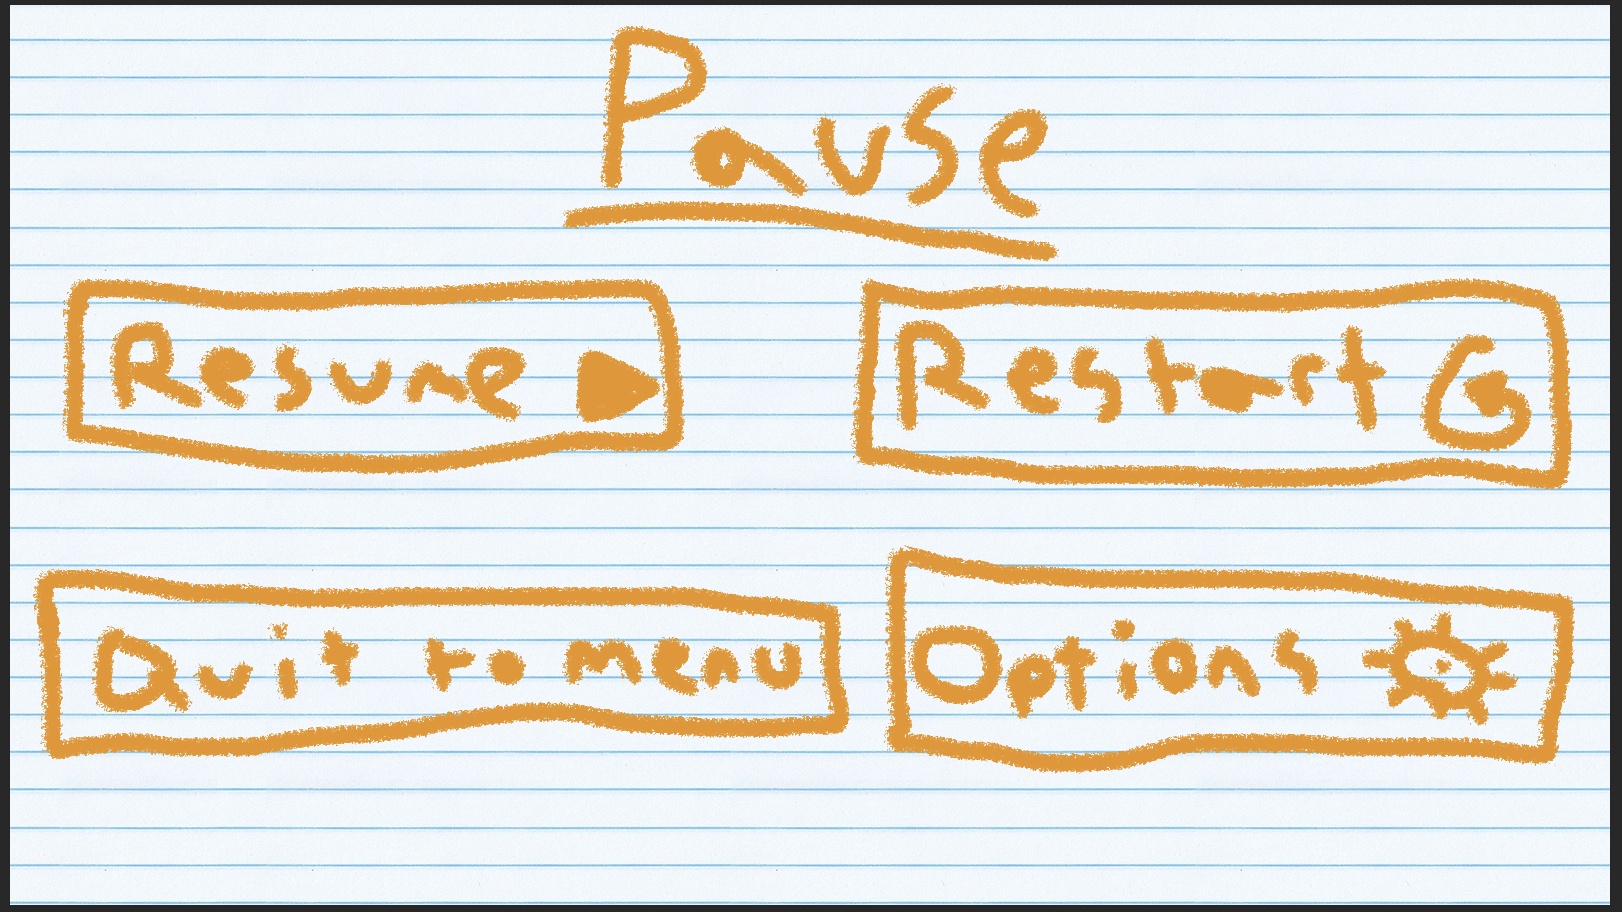 Pause
Resume
Restart
Quit to menu
Options